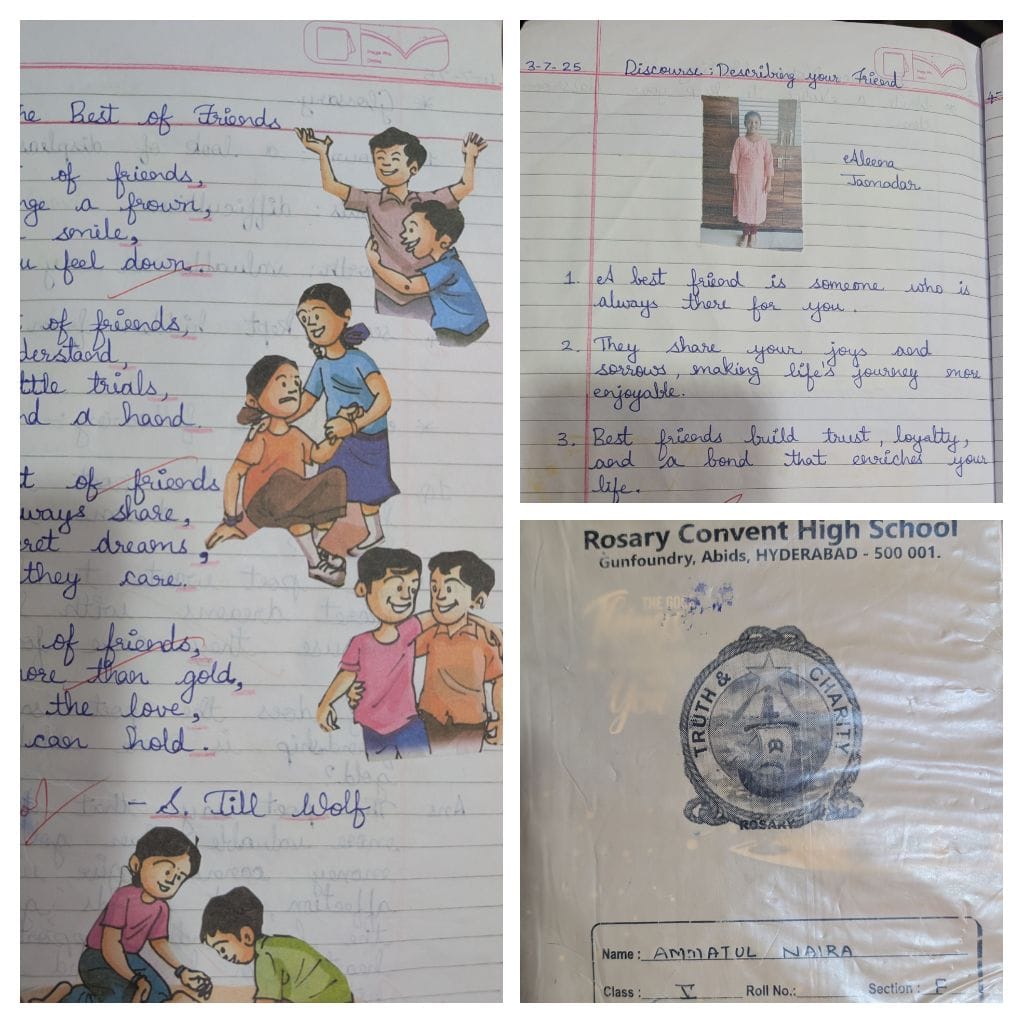 Best of Friends
of friends,
a frown,
smile,
feel down.
of friends,
trials,
a hand.
of friends
share,
dreams,
they care.
of friends,
than gold,
the love,
can hold.
- S. Jill Wolf
3-7-25 Discourse : Describing your Friend
Aleena
Jasmadar
1. A best friend is someone who is
always there for you.
2. They share your joys and
sorrows, making life's journey more
enjoyable.
3. Best friends build trust, loyalty,
and a bond that enriches your
life.
Rosary Convent High School
Gunfoundry, Abids, HYDERABAD - 500 001.
TRUTH & CHARITY
ROSARY
Name : AMMATUL NAIRA
Class : V Roll No.: Section : F